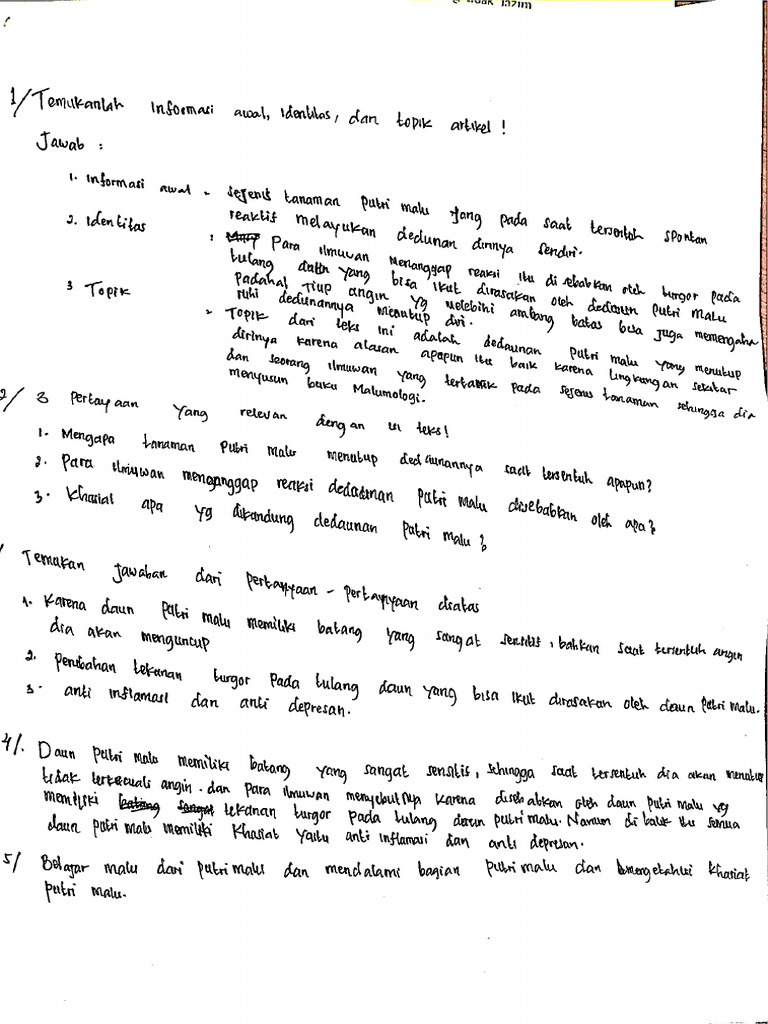 tidak lazim
1/ Temukanlah informasi awal, identitas, dan topik artikel!
Jawab :
1. Informasi awal - sejenis tanaman putri malu yang pada saat tersentuh spontan
reaktif melayukan dedunan dirinya sendiri.
2. Identitas : Para ilmuwan menanggap reaksi itu di sebabkan oleh turgor pada
tulang daun yang bisa ikut dirasakan oleh dedaun putri malu
padahal tiup angin yg melebihi ambang batas bisa juga memengaruhi
dedunannya menutup diri.
3 Topik - Topik dari teks ini adalah dedaunan putri malu yang menutup
dirinya karena alasan apapun itu baik karena lingkungan sekitar
dan seorang ilmuwan yang tertarik pada sejenis tanaman sehingga dia
menyusun buku Malumologi.
2/ 3 pertayaan yang relevan dengan isi teks!
1. Mengapa tanaman putri malu menutup dedaunannya saat tersentuh apapun?
2. Para ilmiuwan menganggap reaksi dedaunan putri malu disebabkan oleh apa?
3. Khasiat apa yg dikandung dedaunan putri malu?
/ Temukan jawaban dari pertanyaan - pertanyaan diatas
1. Karena daun putri malu memiliki batang yang sangat sensitif, bahkan saat tersentuh angin
dia akan menguncup
2. Perubahan tekanan turgor pada tulang daun yang bisa ikut dirasakan oleh daun putri malu.
3. anti inflamasi dan anti depresan.
4/. Daun putri malu memiliki batang yang sangat sensitif, sehingga saat tersentuh dia akan menutup
tidak terkecuali angin. dan Para ilmuwan menyebutnya karena disebabkan oleh daun putri malu yg
memiliki batang sangat tekanan turgor pada tulang daun putri malu. Namun di balik itu semua
daun putri malu memiliki khasiat yaitu anti inflamasi dan anti depresan.
5/ Belajar malu dari putri malu dan mendalami bagian putri malu dan mengetahui khasiat
putri malu.